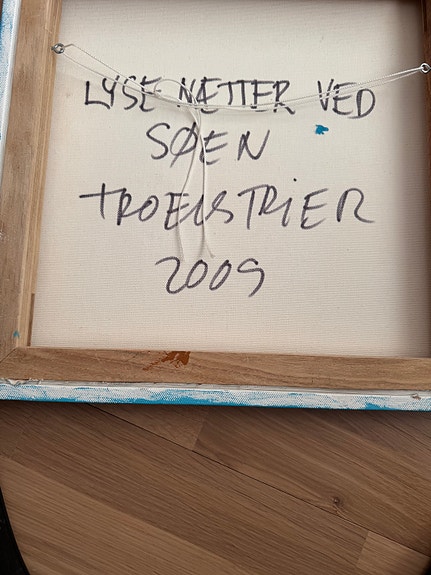 LYSE NÆTTER VED
SØEN
TROELS TRIER
2009